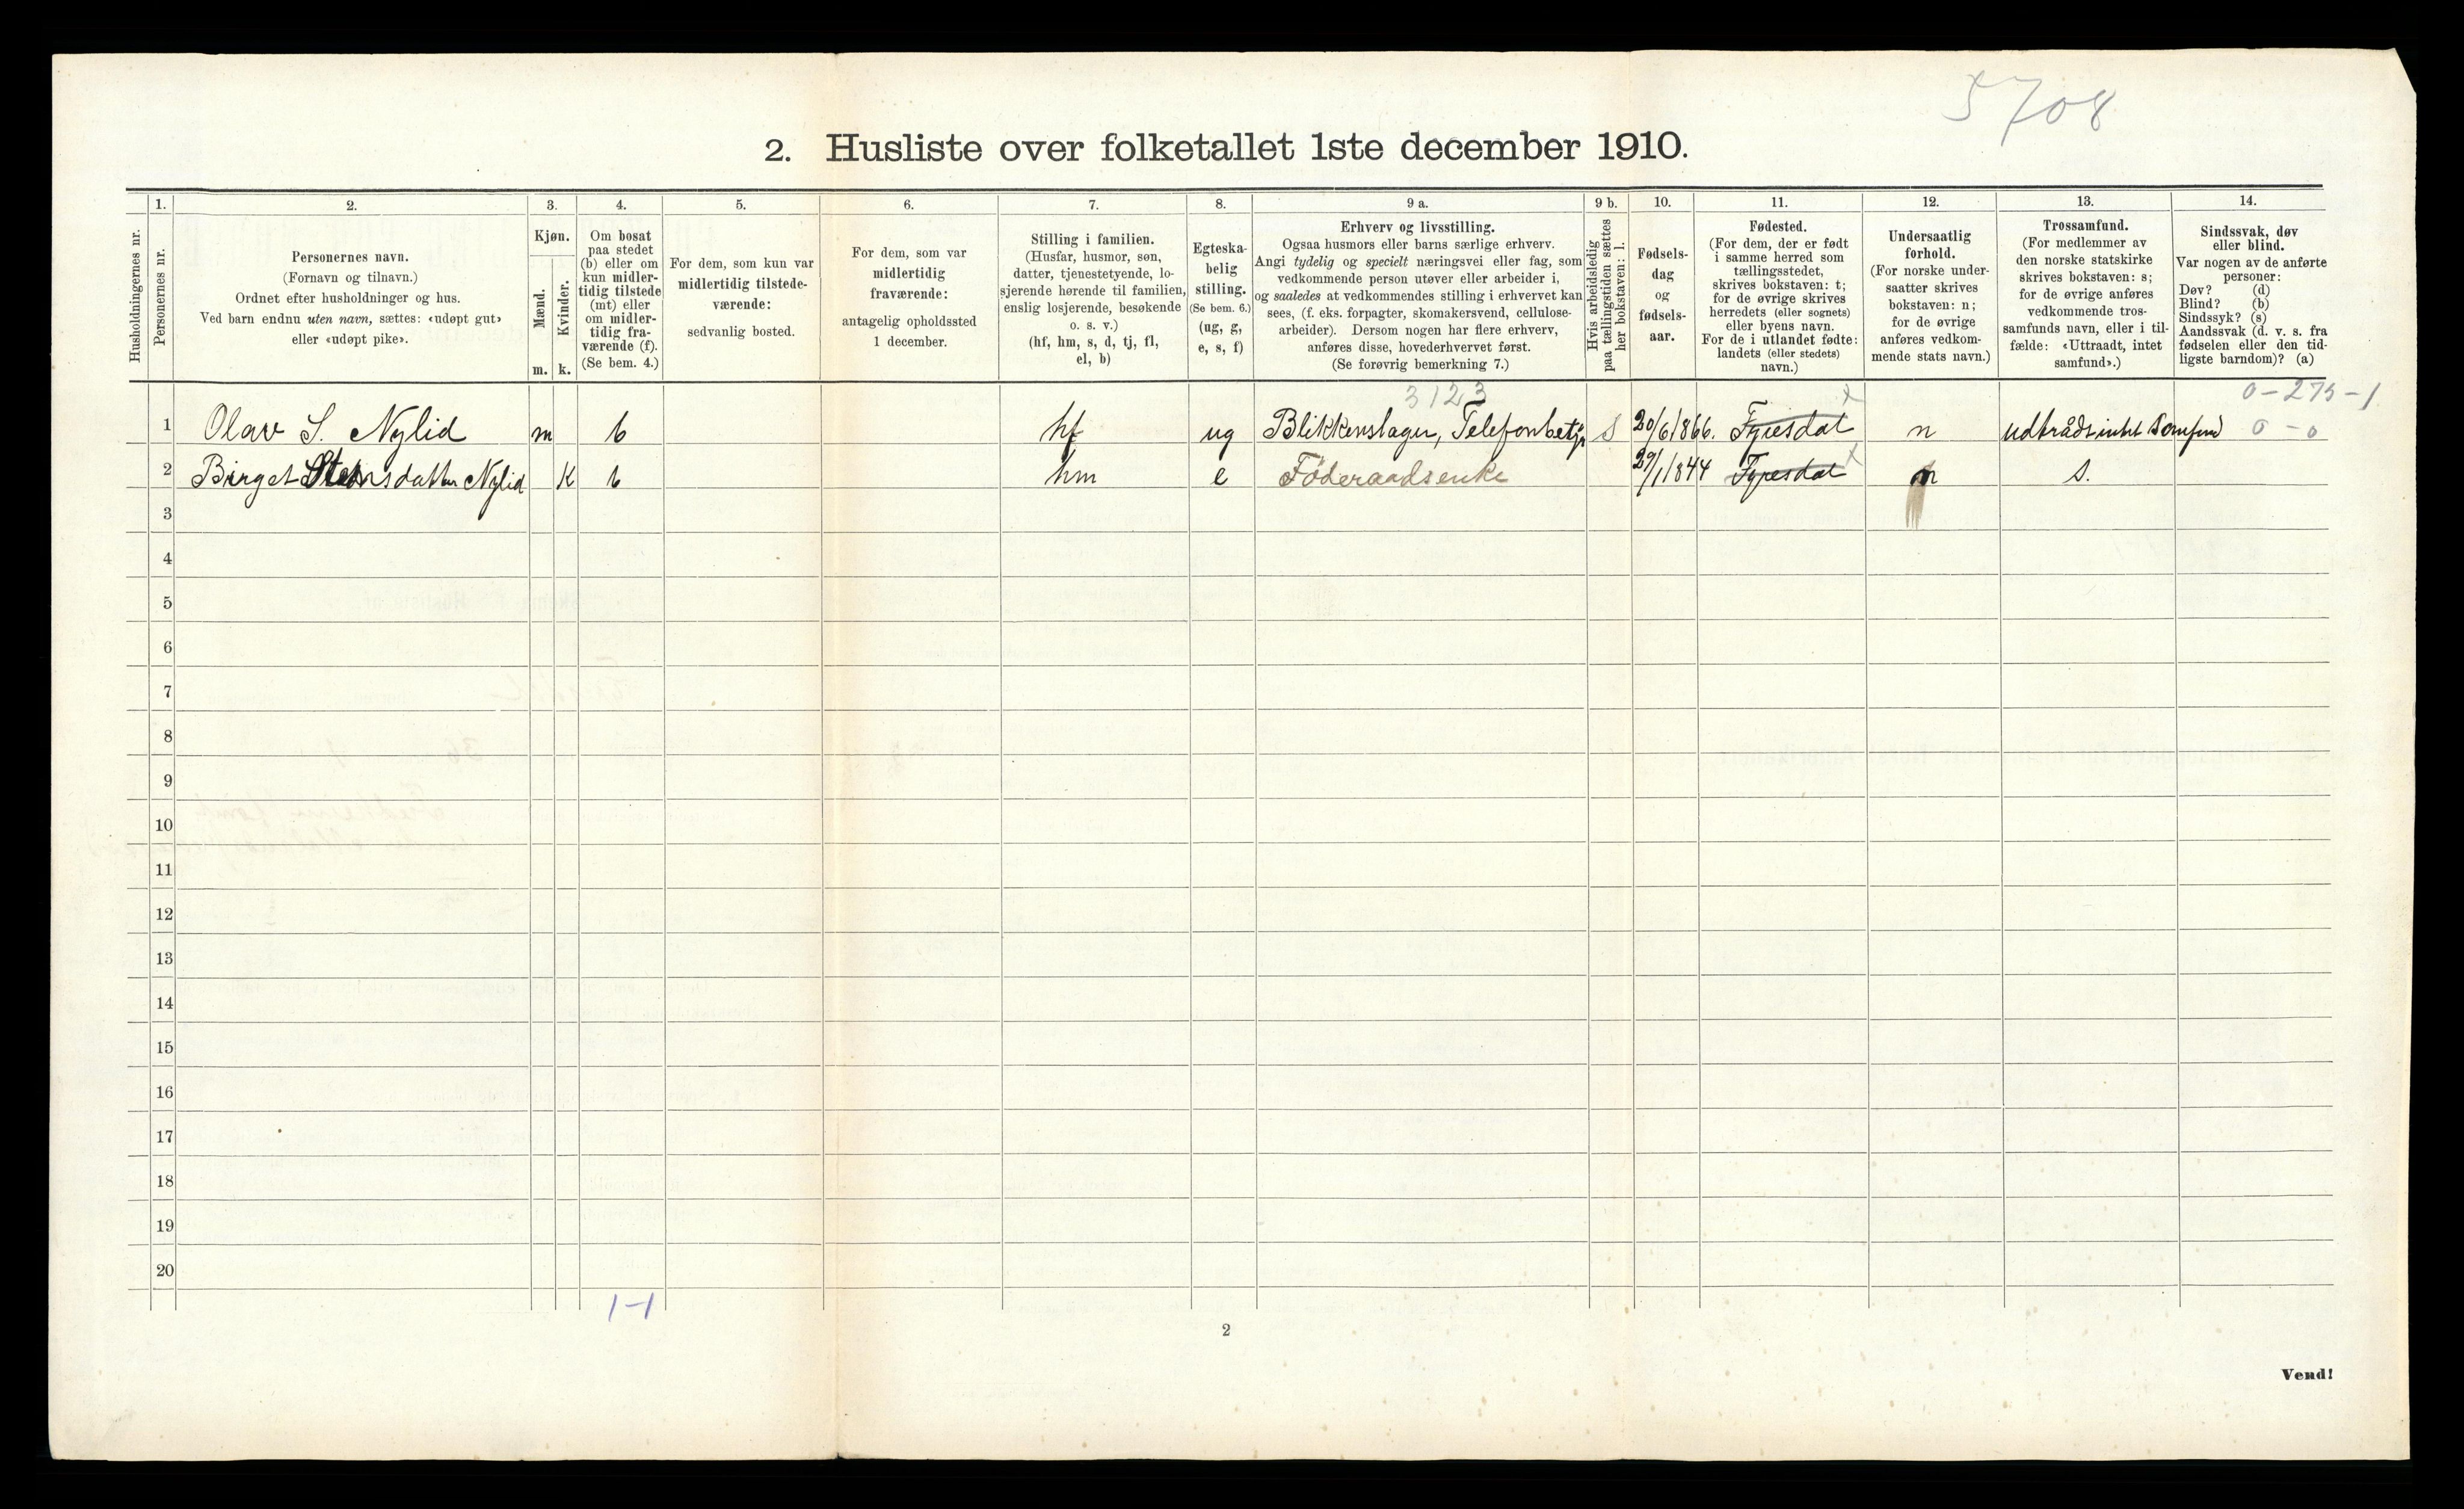 5708
2. Husliste over folketallet 1ste december 1910.
Husholdningernes nr.
1.
Personernes nr.
2.
Personernes navn.
(Fornavn og tilnavn.)
Ordnet efter husholdninger og hus.
Ved barn endnu uten navn, sættes: «udøpt gut»
eller «udøpt pike».
3.
Kjøn.
Mænd.
Kvinder.
m. k.
4.
Om bosat
paa stedet
(b) eller om
kun midler-
tidig tilstede
(mt) eller
om midler-
tidig fra-
værende (f).
(Se bem. 4.)
5.
For dem, som kun var
midlertidig tilstede-
værende:
sedvanlig bosted.
6.
For dem, som var
midlertidig
fraværende:
antagelig opholdssted
1 december.
7.
Stilling i familien.
(Husfar, husmor, søn,
datter, tjenestetyende, lo-
sjerende hørende til familien,
enslig losjerende, besøkende
o. s. v.)
(hf, hm, s, d, tj, fl,
el, b)
8.
Egteska-
belig
stilling.
(Se bem. 6.)
(ug, g,
e, s, f)
9 a.
Erhverv og livsstilling.
Ogsaa husmors eller barns særlige erhverv.
Angi tydelig og specielt næringsvei eller fag, som
vedkommende person utøver eller arbeider i,
og saaledes at vedkommendes stilling i erhvervet kan
sees, (f. eks. forpagter, skomakersvend, cellulose-
arbeider). Dersom nogen har flere erhverv,
anføres disse, hovederhvervet først.
(Se forøvrig bemerkning 7.)
9 b.
Hvis arbeidsledig
paa tællingstiden sættes
her bokstaven: l.
10.
Fødsels-
dag
og
fødsels-
aar.
11.
Fødested.
(For dem, der er født
i samme herred som
tællingsstedet,
skrives bokstaven: t;
for de øvrige skrives
herredets (eller sognets)
eller byens navn.
For de i utlandet fødte:
landets (eller stedets)
navn.)
12.
Undersaatlig
forhold.
(For norske under-
saatter skrives
bokstaven: n;
for de øvrige
anføres vedkom-
mende stats navn.)
13.
Trossamfund.
(For medlemmer av
den norske statskirke
skrives bokstaven: s;
for de øvrige anføres
vedkommende tros-
samfunds navn, eller i til-
fælde: «Uttraadt, intet
samfund».)
14.
Sindssvak, døv
eller blind.
Var nogen av de anførte
personer:
Døv? (d)
Blind? (b)
Sindssyk? (s)
Aandssvak (d. v. s. fra
fødselen eller den tid-
ligste barndom)? (a)
3123
0-275-1
1 Olav S. Nylid m b hf ug Blikkenslager, Telefonbetj. S 20/6/1866. Fyresdal n udtrådt intet Samfund 0-0
2 Birget Steinsdatter Nylid K b hm e Føderaadsenke 29/1/1844 Fyresdal n s.
3
4
5
6
7
8
9
10
11
12
13
14
15
16
17
18
19
20
1-1
2
Vend!